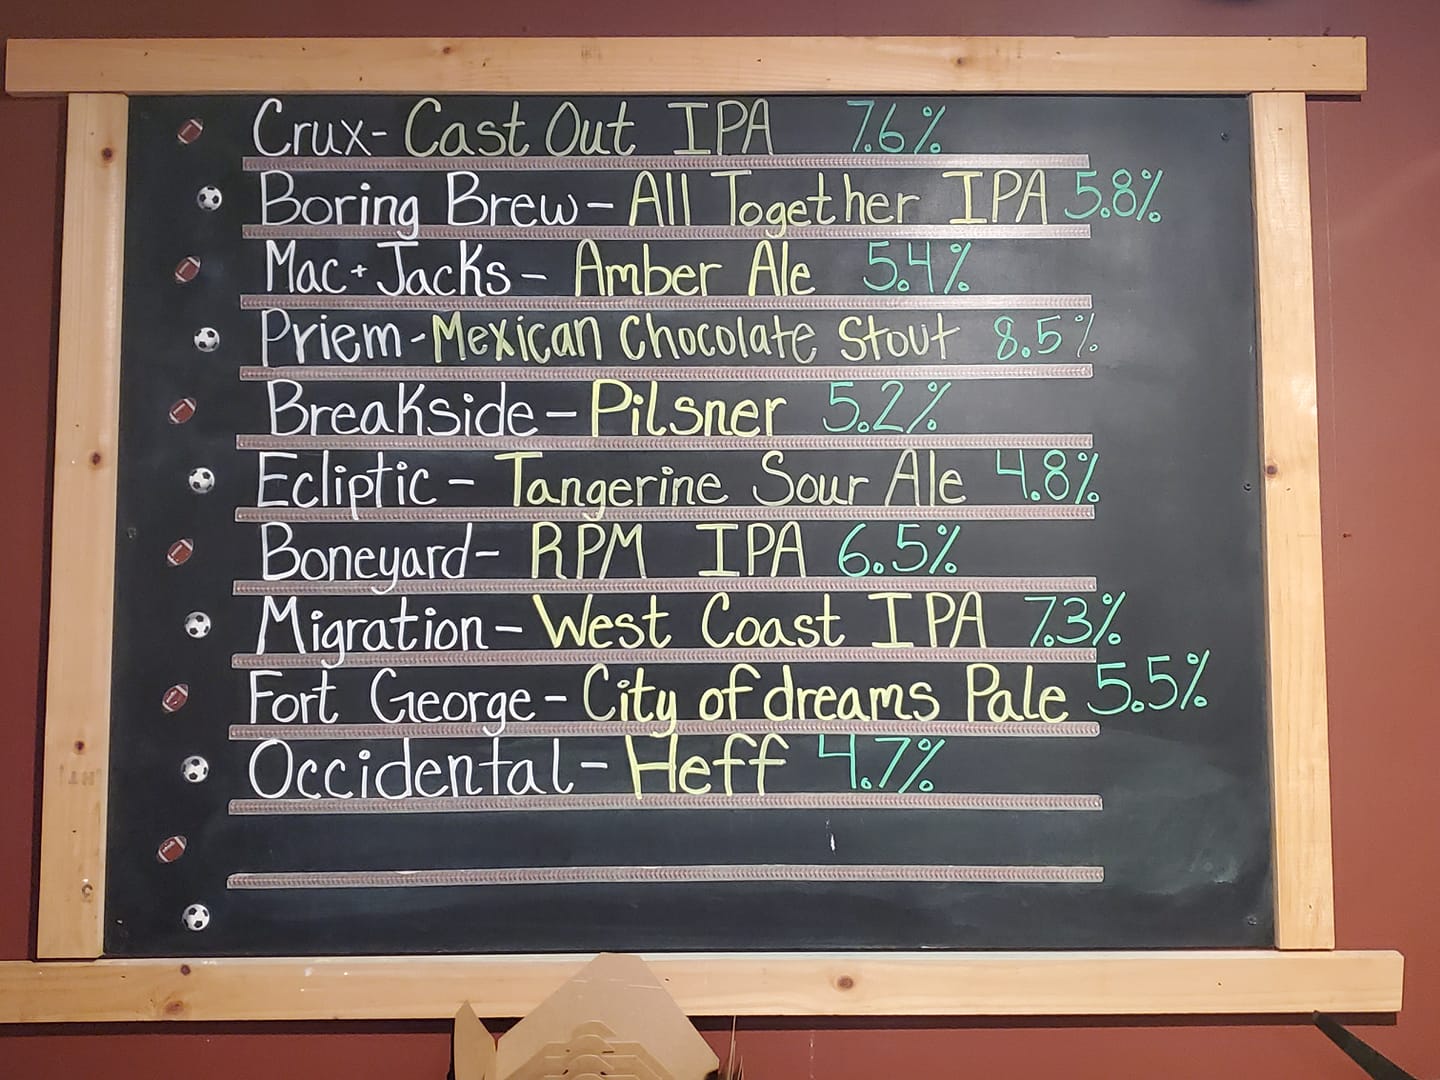 Crux- Cast Out IPA 7.6%
Boring Brew- All Together IPA 5.8%
Mac + Jacks- Amber Ale 5.4%
Priem- Mexican Chocolate Stout 8.5%
Breakside- Pilsner 5.2%
Ecliptic- Tangerine Sour Ale 4.8%
Boneyard- RPM IPA 6.5%
Migration- West Coast IPA 7.3%
Fort George- City of dreams Pale 5.5%
Occidental- Heff 4.7%